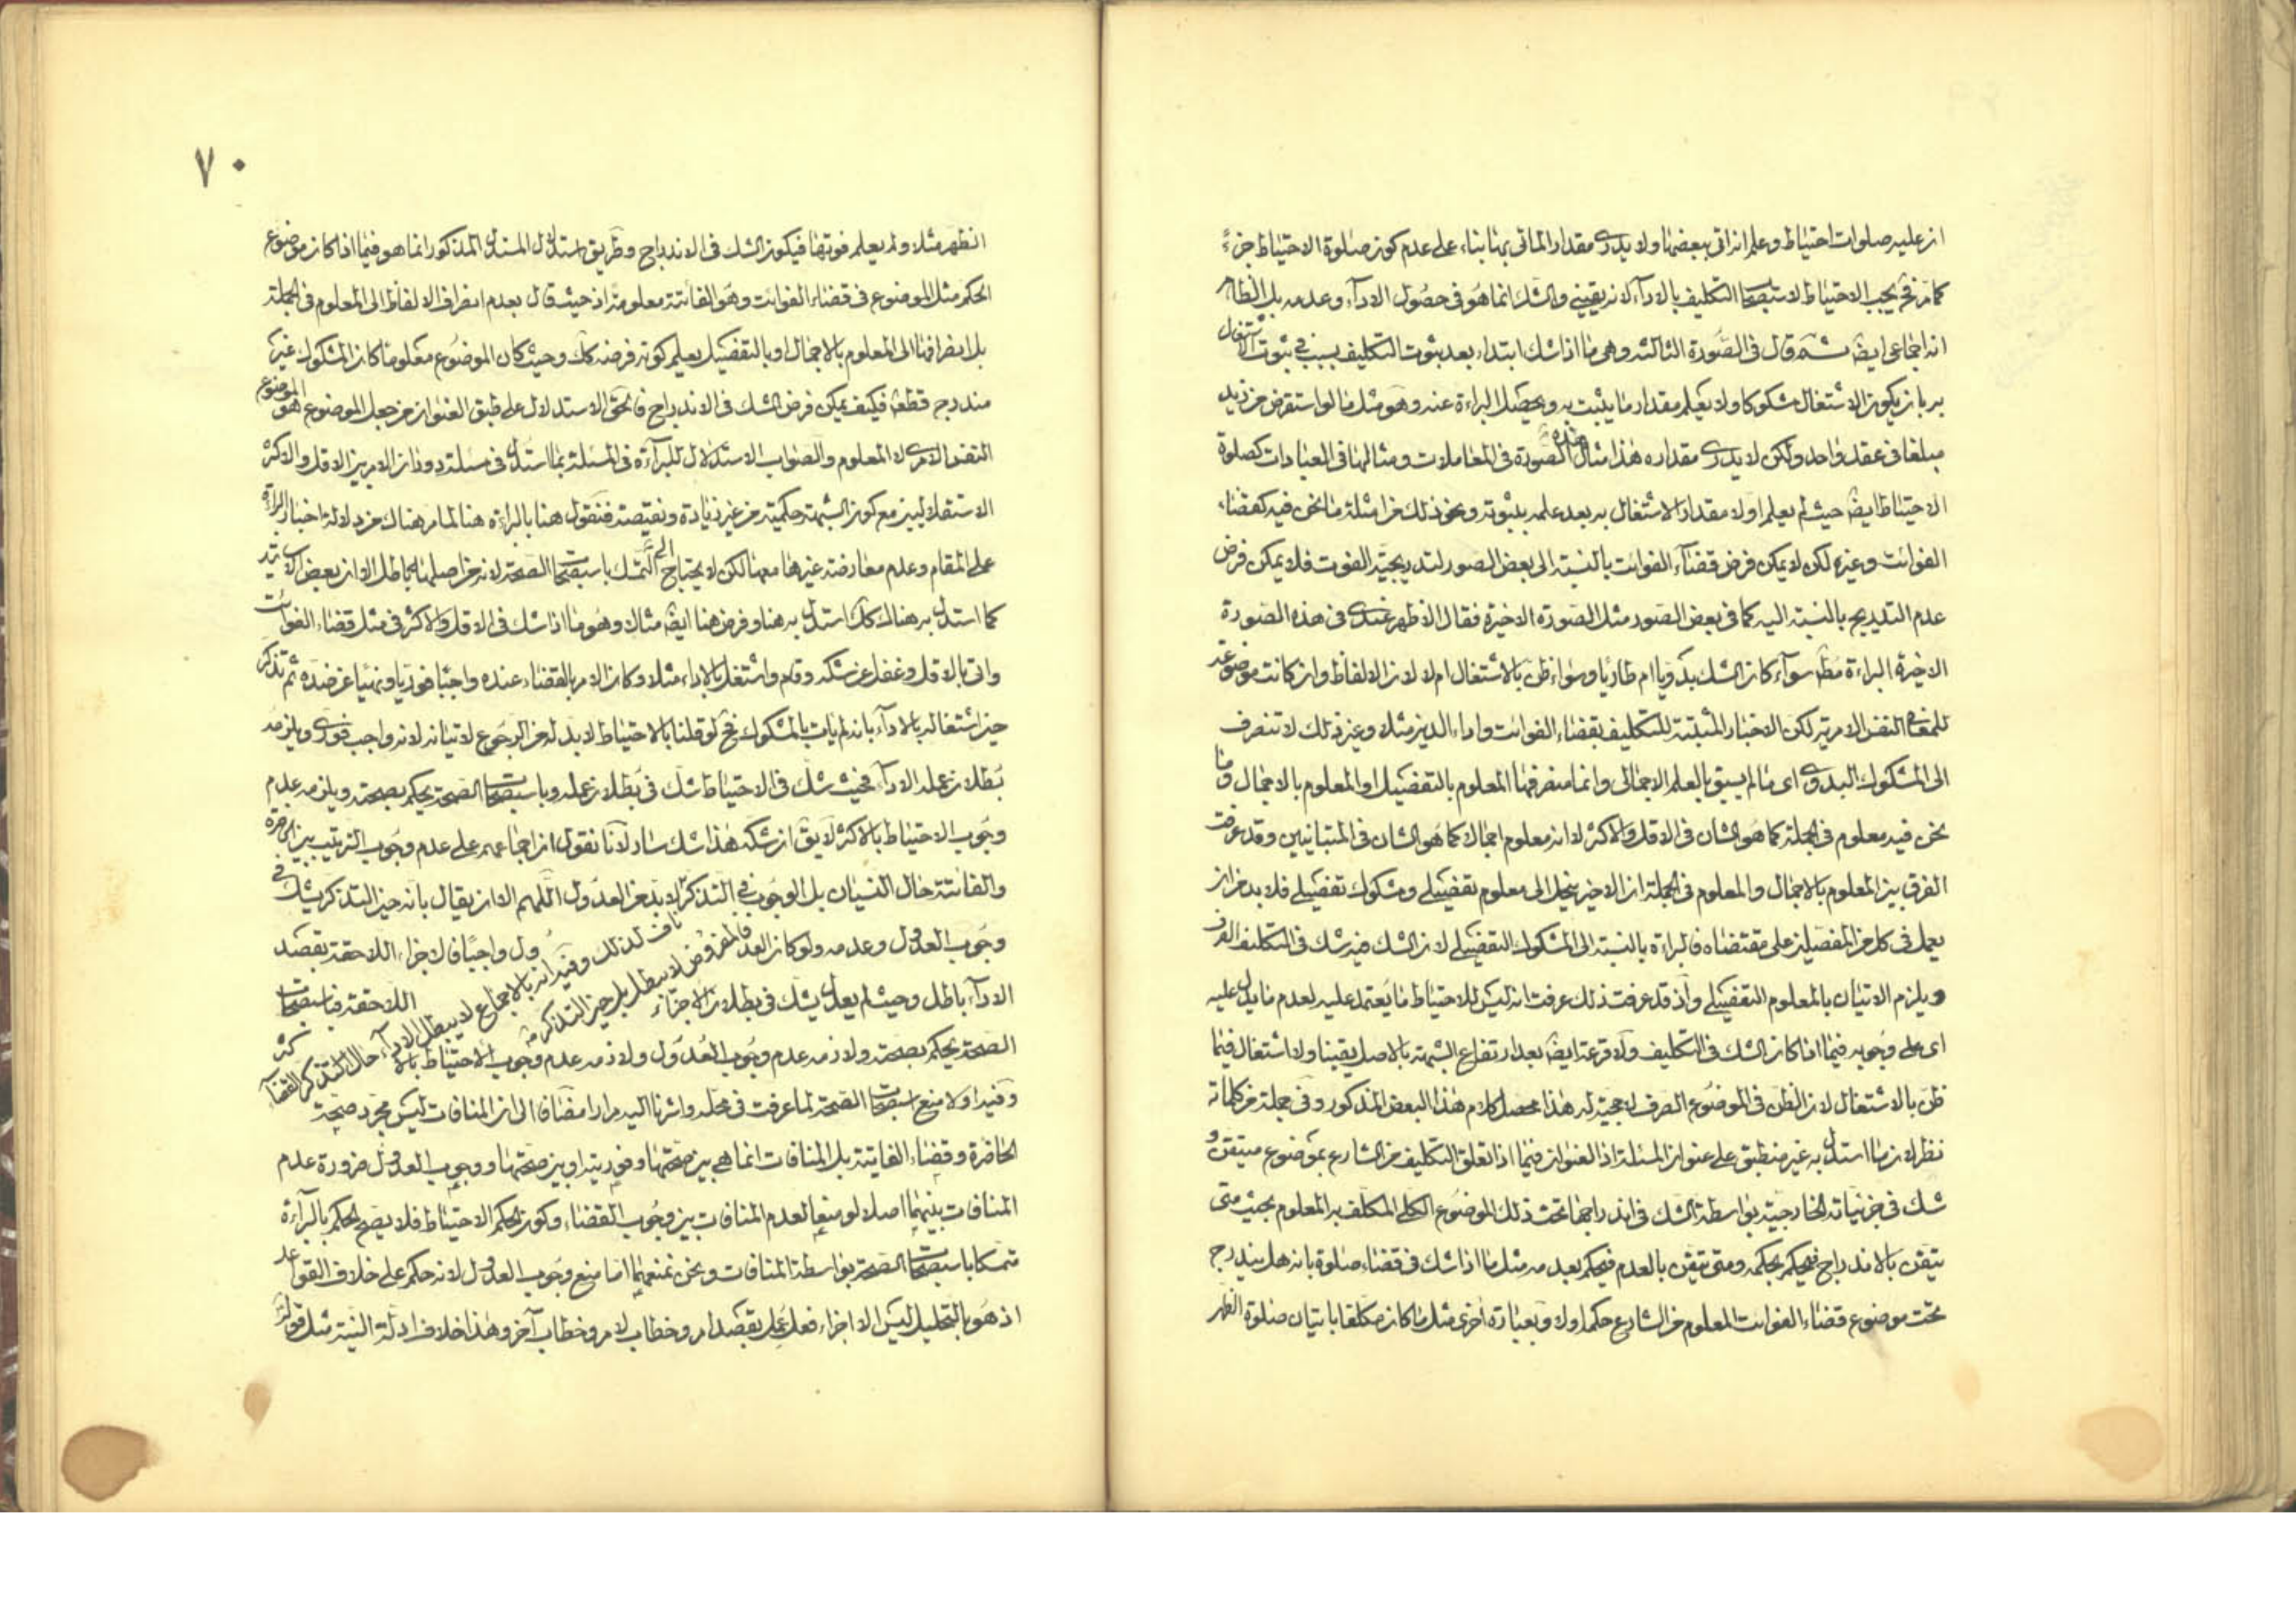 ان عليه صلوات احتياط وعلم انه اتى ببعضها ولا يدرى مقدار الماتى بها بناء على عدم كون صلوة الاحتياط جزءً
كما مر فح يجب الاحتياط لاستصحاب التكليف بالاداء لانه يقينى والشك انما هو فى حصول الاداء وعدمه بل الظاهر
انه اجماعى ايضا ثم قال فى الصورة الثالثة وهى ما اذا شك ابتداء بعد ثبوت التكليف بسبب فى ثبوت الاشتغال
به بان يكون الاشتغال مشكوكا ولا يعلم مقدار ما يثبت به ويحصل البراءة عنه وهو مثل ما لو استقرض من زيد
مبلغا فى عقد واحد ولكن لا يدرى مقداره هذا مثال هذه الصورة فى المعاملات ومثالها فى العبادات كصلوة
الاحتياط ايضا حيث لم يعلم اولا مقدار الاشتغال به بعد علمه بثبوته ونحو ذلك من امثلة ما نحن فيه كقضاء
الفوائت وغيره لكن لا يمكن فرض قضاء الفوائت بالنسبة الى بعض الصور لتدريجية الفوت فلا يمكن فرض
عدم التدريج بالنسبة اليه كما فى بعض الصور مثل الصورة الاخيرة فقال الاظهر عندى فى هذه الصورة
الاخيرة البراءة مطلقا سواء كان الشك بدويا ام طاريا وسواء ظن بالاشتغال ام لا لان الالفاظ وان كانت موضوعة
للمعانى النفس الامرية لكن الاخبار المثبتة للتكليف بقضاء الفوائت واداء الدين مثلا وغير ذلك لا تنصرف
الى المشكوك البدوى اى ما لم يسبق بالعلم الاجمالى وانما منصرفها المعلوم بالتفصيل او المعلوم بالاجمال وما
نحن فيه معلوم فى الجملة كما هو الشان فى الاقل والاكثر لا انه معلوم اجمالا كما هو الشان فى المتباينين وقد عرفت
الفرق بين المعلوم بالاجمال والمعلوم فى الجملة اذ الاخير ينحل الى معلوم تفصيلى ومشكوك تفصيلى فلا بد من ان
يعمل فى كل من المفصلين على مقتضاه فالبراءة بالنسبة الى المشكوك التفصيلى لان الشك فيه شك فى التكليف الصرف
ويلزم الاتيان بالمعلوم التفصيلى واذ قد عرفت ذلك عرفت انه ليس للاحتياط ما يعتمد عليه لعدم ما يدل عليه
اى على وجوبه فيما اذا كان الشك فى التكليف ولا قرعة ايضا بعد ارتفاع الشبهة بالاصل يقينا ولا اشتغال فيما
ظن بالاشتغال لان الظن فى الموضوع الصرف لا حجية له هذا محصل كلام هذا البعض المذكور وفى جملة من كلماته
نظر لان ما استدل به غير منطبق على عنوان المسئلة اذ العنوان فيما اذا تعلق التكليف من الشارع بموضوع متيقن و
شك فى جزئياته الخارجية بواسطة الشك فى اندراجها تحت ذلك الموضوع الكلى المكلف به المعلوم بحيث متى
تيقن بالاندراج فيحكم بحكمه ومتى تيقن بالعدم فيحكم بعدمه مثل ما اذا شك فى قضاء صلوة بانه هل يندرج
تحت موضوع قضاء الفوائت المعلوم من الشارع حكمه اولا وبعبارة اخرى مثل ما كان مكلفا باتيان صلوة الظهر
٧٠
الظهر مثلا ولم يعلم فوتها فيكون الشك فى الاندراج وطريق استدلال المستدل المذكور انما هو فيما اذا كان موضوع
الحكم مثل الموضوع فى قضاء الفوائت وهو الفائتة معلومة اذ حيث قال بعدم انصراف الالفاظ الى المعلوم فى الجملة
بل انصرافها الى المعلوم بالاجمال او بالتفصيل يعلم كونه فرضه كك وحيث كان الموضوع معلوما كان المشكوك غير
مندرج قطعا فكيف يمكن فرض الشك فى الاندراج فالحق الاستدلال على طبق العنوان من جعل الموضوع هو الموضوع
النفس الامرى لا المعلوم والصواب الاستدلال للبراءة فى المسئلة بما استدل فى مسئلة دوران الامر بين الاقل والاكثر
الاستقلاليين مع كون الشبهة حكمية من غير زيادة ونقيصة فنقول هنا بالبراءة هنا لما مر هناك من دلالة اخبار البراءة
على المقام وعدم معارضة غيرها معها لكن لا يحتاج الى التمسك باستصحاب الصحة لانه من اصلها باطل الا ان بعض الاساتيد
كما استدل به هناك كك استدل به هنا وفرض هنا ايضا مثالا وهو ما اذا شك فى الاقل والاكثر فى مثل قضاء الفوائت
واتى بالاقل وغفل عن شكه وقام واشتغل بالاداء مثلا وكان الامر بالقضاء عنده واجبا فوريا ونهيا عن ضده ثم تذكر
حين اشتغاله بالاداء بانه لم يات بالمشكوك فح لو قلنا بالاحتياط لا بد له من الرجوع لاتيانه لانه واجب فورى ويلزمه
بطلان عمله الاداء فحيث شك فى الاحتياط شك فى بطلان عمله وباستصحاب الصحة يحكم بصحته ويلزمه عدم
وجوب الاحتياط بالاكثر لا يق ان شكه هذا شك سار لانا نقول ان اجماعهم على عدم وجوب الترتيب بين الحاضرة
والفائتة حال النسيان بل الوجوب فى التذكر لا بد من العدول اللهم الا ان يقال بانه حين التذكر يشك فى
وجوب العدول وعدمه ولو كان العدول واجبا فالاجزاء اللاحقة بقصد
الاداء باطل وحيث لم يعدل يشك فى بطلان الاجزاء اللاحقة فباستصحاب
الصحة يحكم بصحته ولازمه عدم وجوب العدول ولازمه عدم وجوب الاحتياط بالاكثر
وفيه اولا منع استصحاب الصحة لما عرفت فى محله واشرنا اليه مرارا مضافا الى ان المنافات ليس مجرد صحة
الحاضرة وقضاء الفايتة بل المنافات انما هى بين صحتها وفوريته او بين صحتها ووجوب العدول ضرورة عدم
المنافات بينهما اصلا لو منعا لعدم المنافات بين وجوب القضاء وكون الحكم الاحتياط فلا يصح الحكم بالبراءة
تمسكا باستصحاب الصحة بواسطة المنافات ونحن نمنعهما اما منع وجوب العدول لانه حكم على خلاف القواعد
اذ هو بالتحليل ليس الا اجزاء فعل عمل بقصد امر وخطاب لامر وخطاب آخر وهذا خلاف ادلة النية مثل قوله